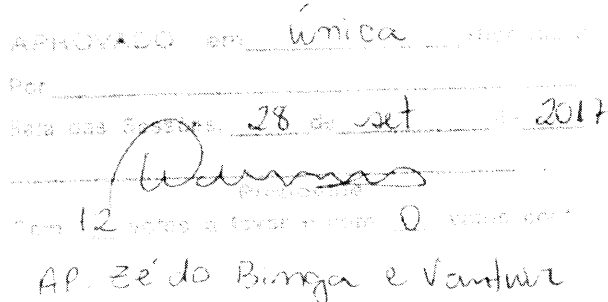 APROVADO em única
Por
Sala das Sessões, 28 de set de 2017
Presidente
Com 12 votos a favor e com 0 votos
AP. Zé do Binga e Vantuir